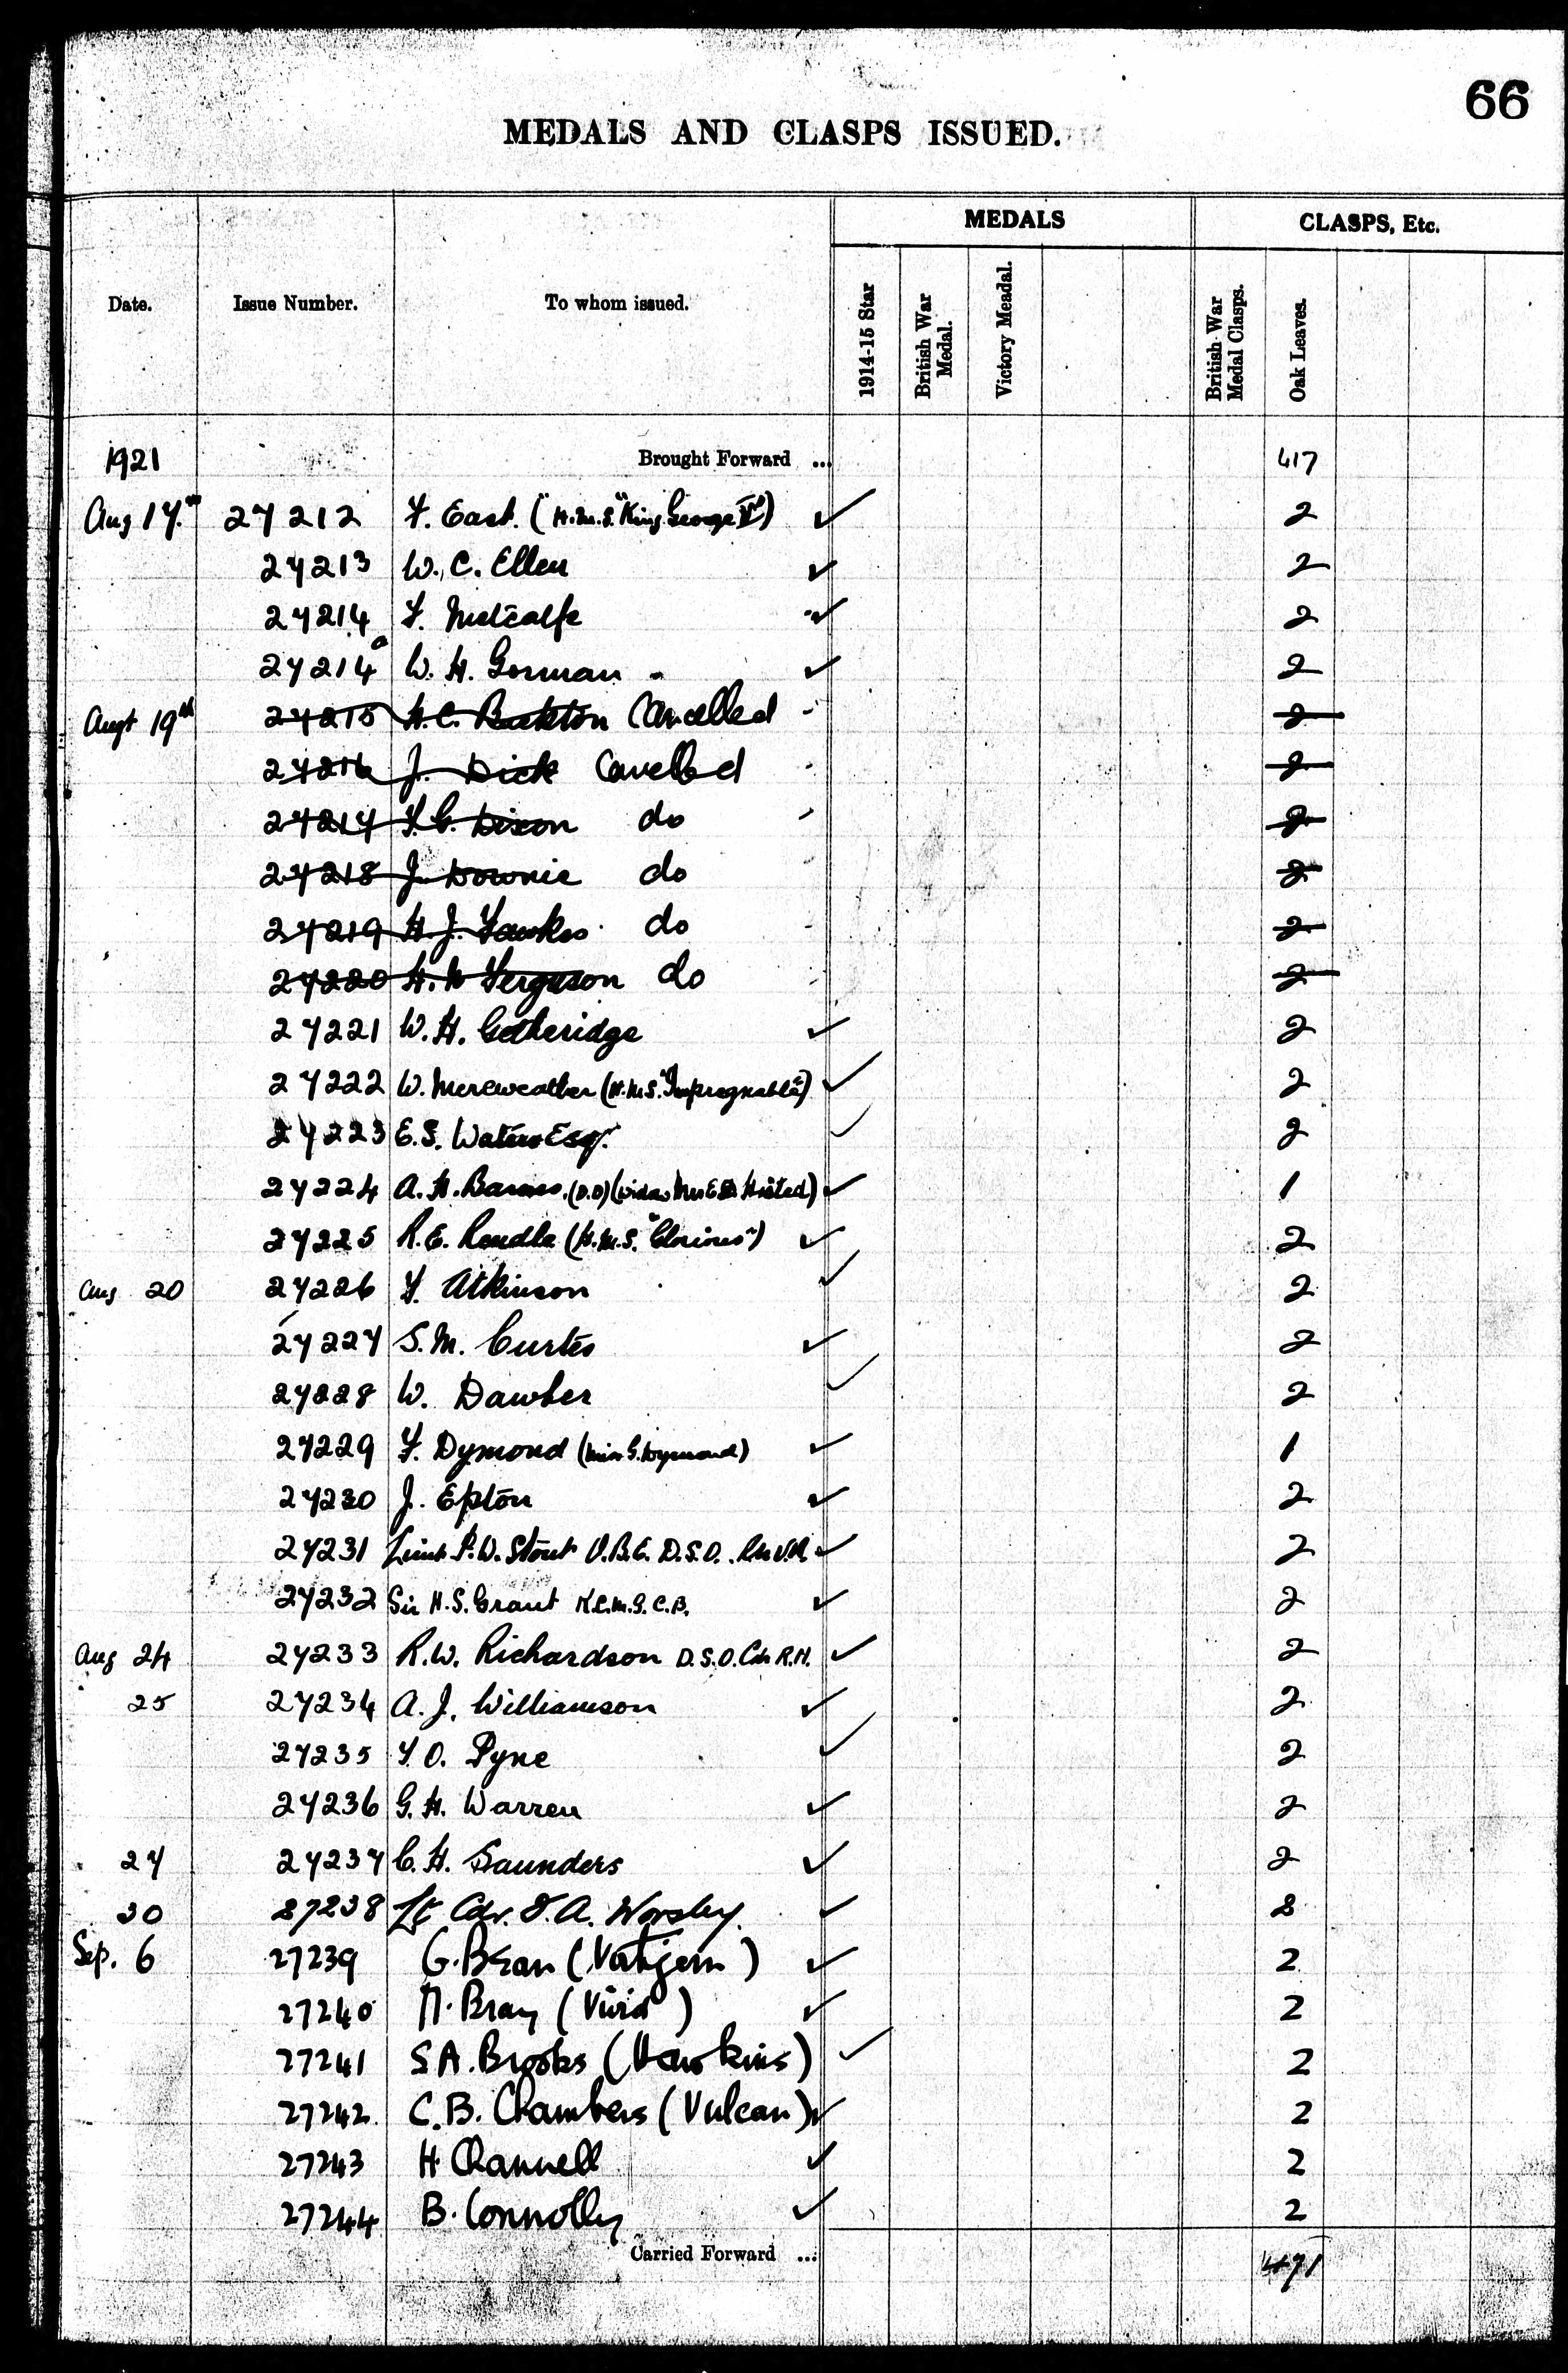 66
MEDALS AND CLASPS ISSUED.
MEDALS CLASPS, Etc.
Date. Issue Number. To whom issued. 1914-15 Star British War Medal. Victory Meadal. British War Medal Clasps. Oak Leaves.
1921 Brought Forward ... 417
Aug 17.th 27212 F. East. (H.M.S. "King George Vth") ✓ 2
27213 W. C. Ellen ✓ 2
27214 F. Metcalfe ✓ 2
27214a W. H. Gorman ✓ 2
Augt 19th 27215 H.C. Cancelled 2
27216 J. Dick Cancelled 2
27217 F.G. Dixon do 2
27218 J. Downie do 2
27219 H.J. Fawkes do 2
27220 H. Ferguson do 2
27221 W. H. Getheridge ✓ 2
27222 W. Mereweather (H.M.S. "Impregnable") ✓ 2
27223 E.S. Waters Esq. ✓ 2
27224 A. H. Barnes. (D.D) (widow Mrs E Histed) ✓ 1
27225 R.E. Rendle (H.M.S. "Glorious") ✓ 2
Aug 20 27226 F. Atkinson ✓ 2
27227 S.M. Curtis ✓ 2
27228 W. Dawber ✓ 2
27229 F. Dymond (Miss G. Dymond) ✓ 1
27230 J. Epton ✓ 2
27231 Lieut P.W. Stout O.B.E. D.S.O. R.N.V.R. ✓ 2
27232 Sir H.S. Grant K.C.M.G. C.B. ✓ 2
Aug 24 27233 R.W. Richardson D.S.O. Cdr R.N. ✓ 2
25 27234 A. J. Williamson ✓ 2
27235 F. O. Pyne ✓ 2
27236 G. H. Warren ✓ 2
27 27237 C. H. Saunders ✓ 2
30 27238 Lt Cdr. A. Worsley. ✓ 2
Sep. 6 27239 G. Bean (Vortigern) ✓ 2
27240 Bray (Vivid) ✓ 2
27241 S A. Brooks (Hawkins) ✓ 2
27242 C. B. Chambers (Vulcan) ✓ 2
27243 H Channell ✓ 2
27244 B. Connolly ✓ 2
Carried Forward ... 471